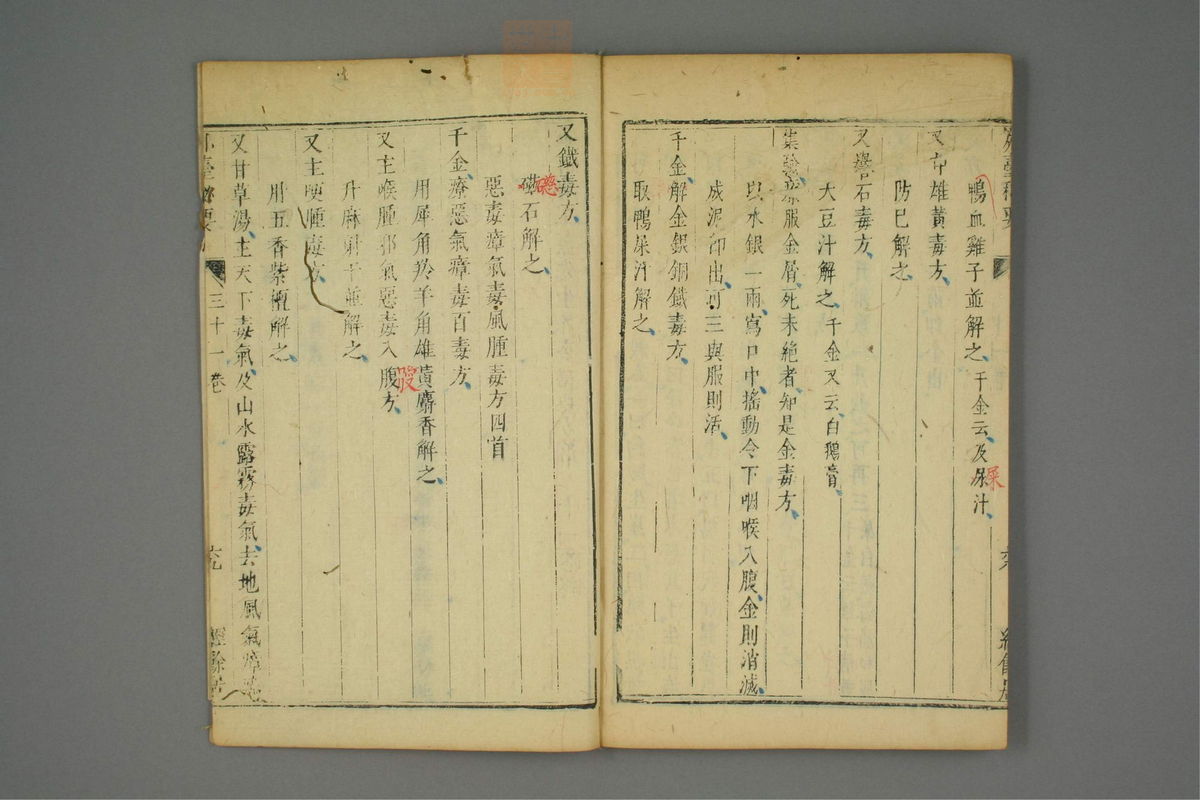 外臺秘要
鴨血雞子並解之千金云及尿汁
屎
又方雄黃毒方
防巳解之
又礜石毒方
大豆汁解之千金又云白鵝膏
集驗療服金屑死未絕者知是金毒方
以水銀一兩瀉口中搖動令下咽喉入腹金則消滅
成泥卽出可三與服則活
千金解金銀銅鐵毒方
取鴨屎汁解之
又鐵毒方
磁石解之
惡毒瘴氣毒風腫毒方四首
千金療惡氣瘴毒百毒方
用犀角羚羊角雄黃麝香解之
又主喉腫邪氣惡毒入腹方
升麻射干並解之
又主腫毒方
用五香紫檀解之
又甘草湯主天下毒氣及山水露霧毒氣去地風氣瘴
外臺秘要
三十一卷
六九
經餘居